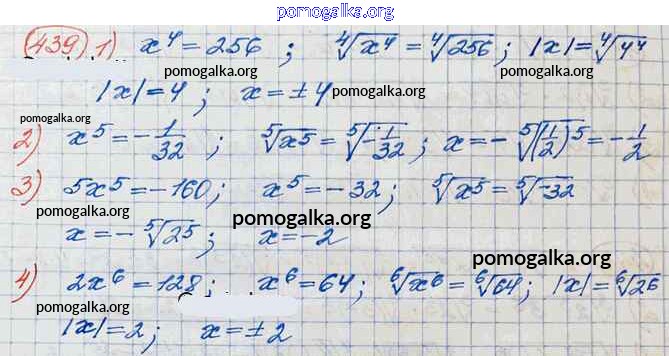 pomogalka.org
(439) 1) x⁴ = 256 ; ⁴√x⁴ = ⁴√256 ; |x| = ⁴√4⁴
pomogalka.org pomogalka.org
|x| = 4 ; x = ±4 pomogalka.org
2) x⁵ = -1/32 ; ⁵√x⁵ = ⁵√-1/32 ; x = -⁵√(1/2)⁵ = -1/2
pomogalka.org
3) 5x⁵ = -160 ; x⁵ = -32 ; ⁵√x⁵ = ⁵√-32
pomogalka.org pomogalka.org
x = -⁵√2⁵ ; x = -2 pomogalka.org
4) 2x⁶ = 128 ; x⁶ = 64 ; ⁶√x⁶ = ⁶√64 ; |x| = ⁶√2⁶
pomogalka.org pomogalka.org
|x| = 2 ; x = ±2